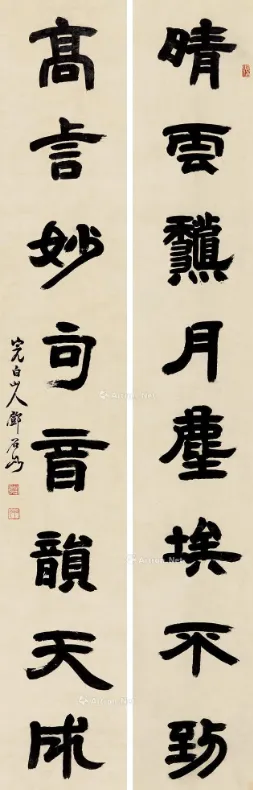 晴雲龝月塵埃不到
高言妙句音韻天成
完白山人鄧石如
Artron.Net